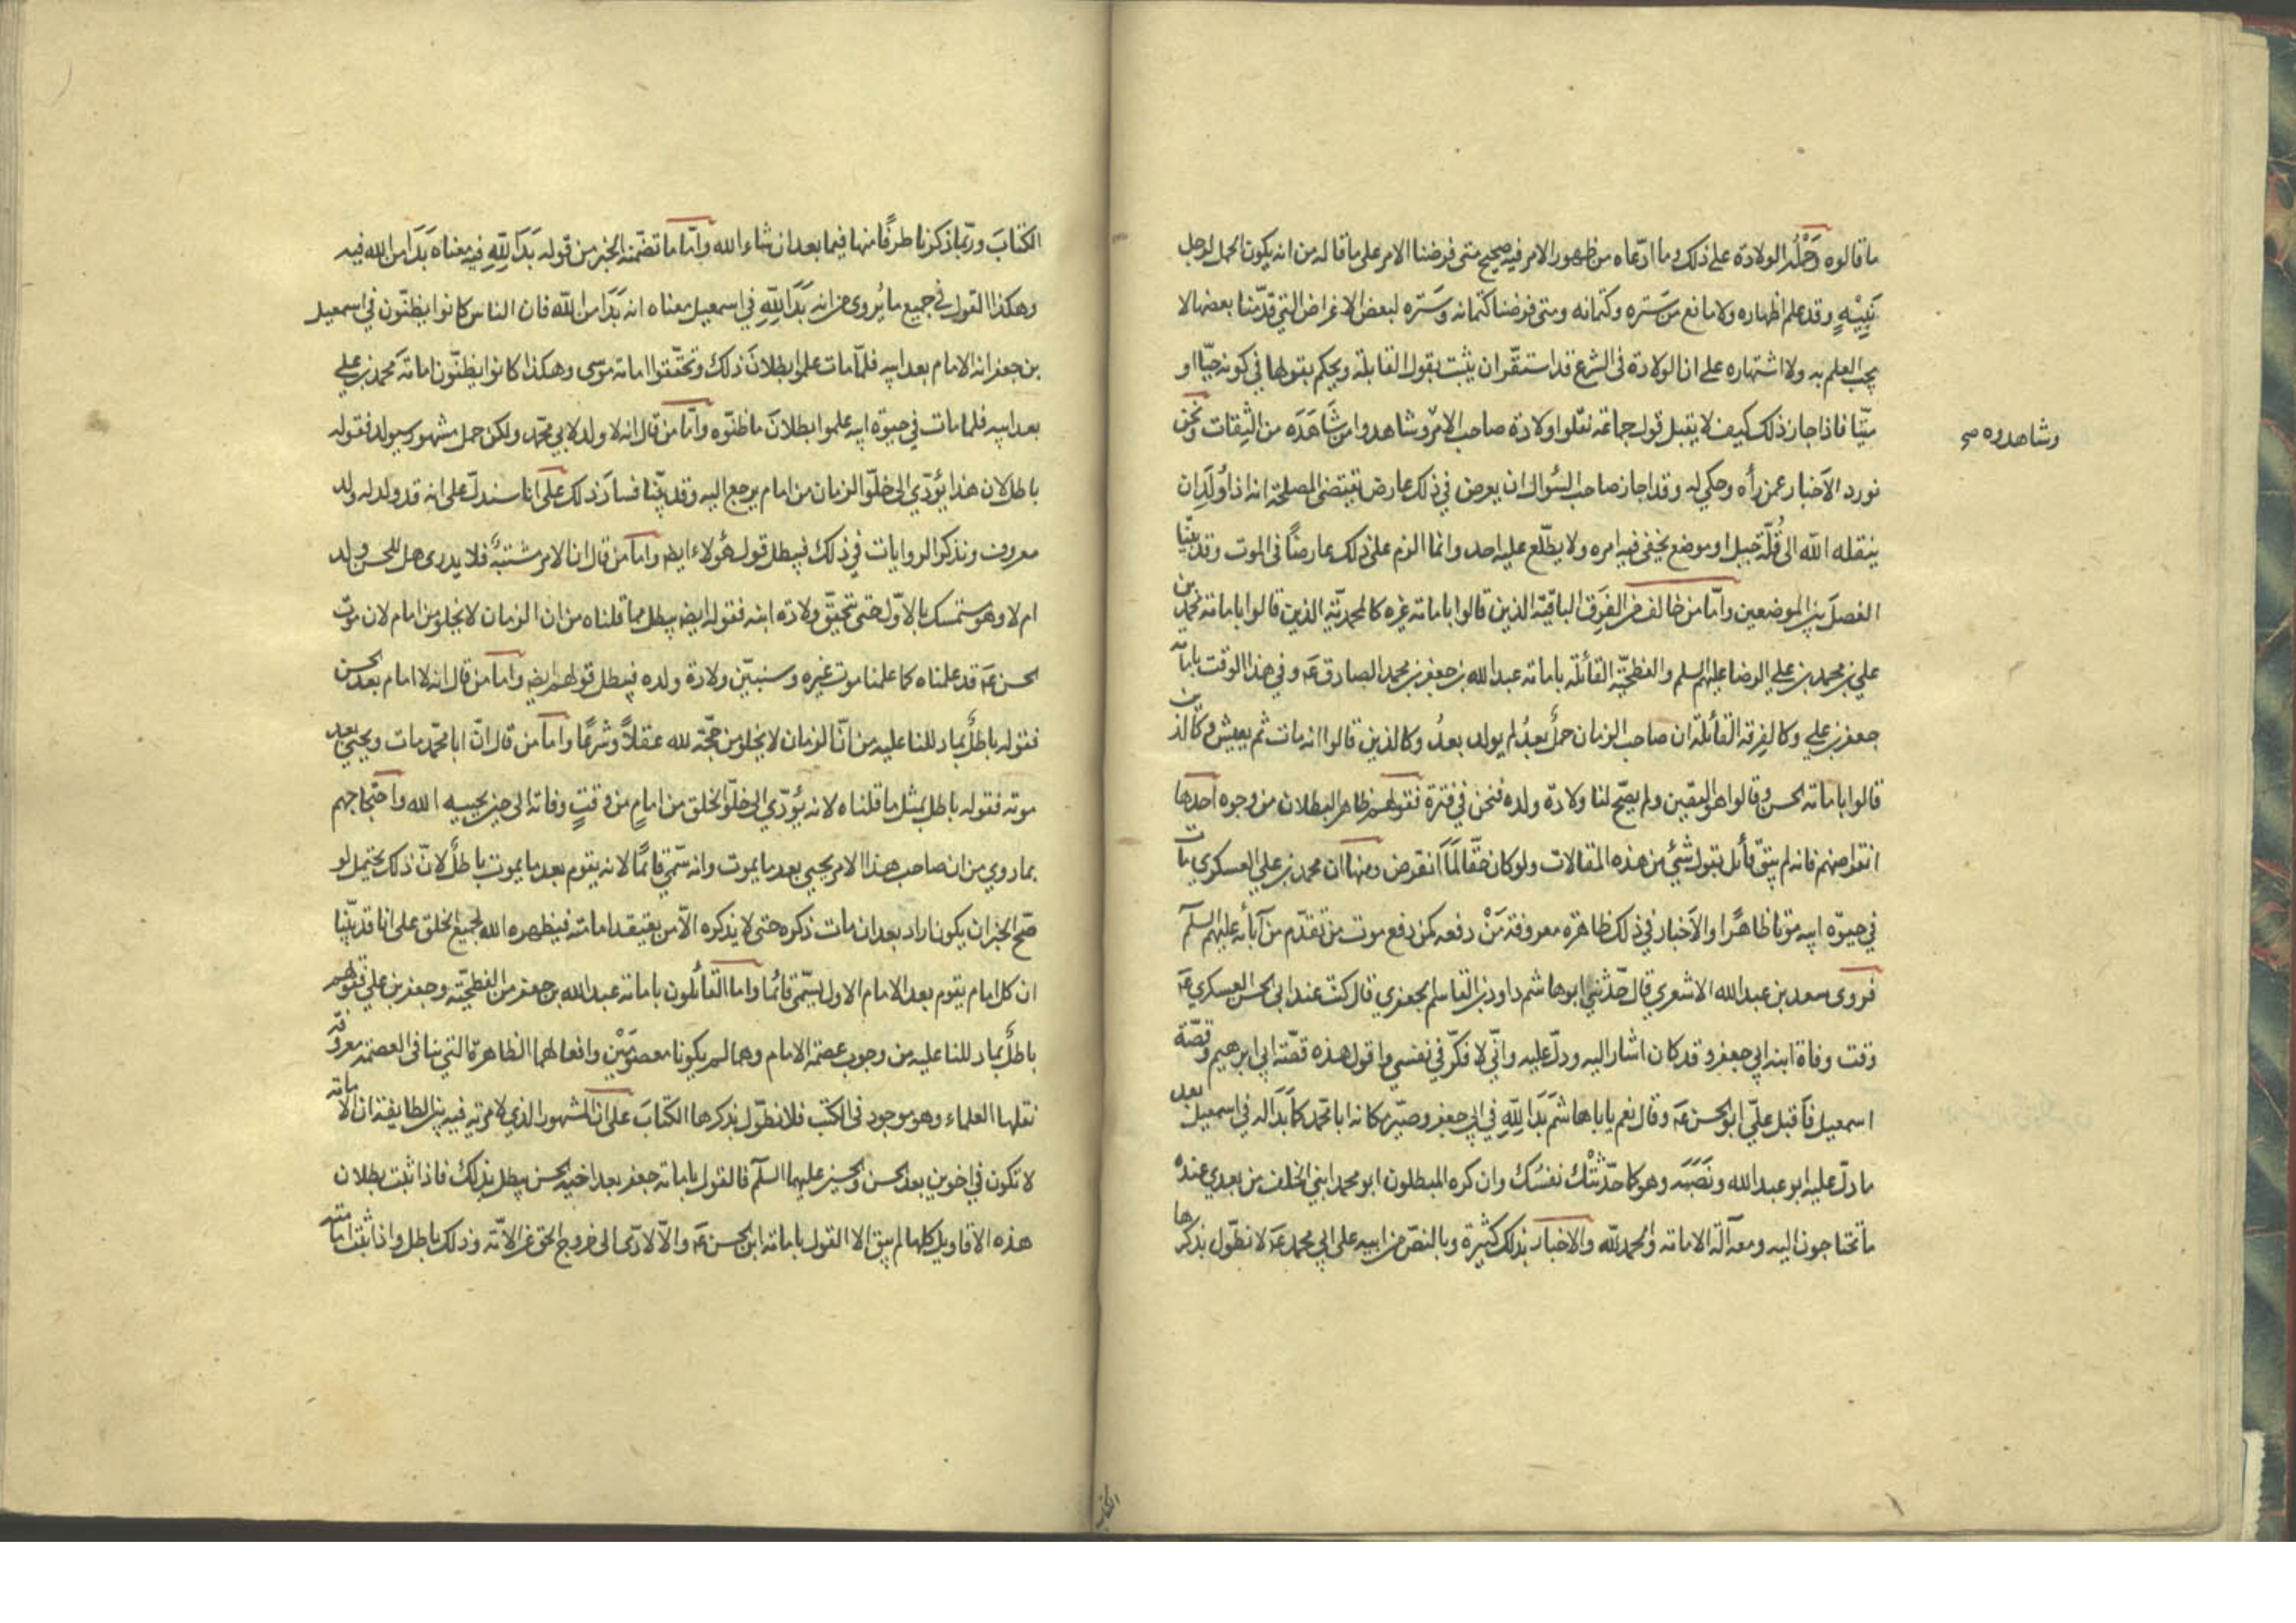 ما قالوه وَحَمْلُ الولادة على ذلك وما ادّعاه من ظهور الامر فيه صحيح متى فرضنا الامر على ما قاله من انه يكون الحمل لرجل
نَبِيْهٍ وقد علم اظهاره ولا مانع من سَتره وكتمانه ومتى فرضنا كتمانه وسَتره لبعض الاغراض التي قدّمنا بعضها لا
يجب العلم به ولا اشتهاره على ان الولادة فى الشرع قد استقّر ان يثبت بقول القابلة ويحكم بقولها في كونه حيّا او
ميّتا فاذا جاز ذلك كيف لا يقبل قول جماعة نقلوا ولادة صاحب الامر وشاهدوا من شَاهَدَه من الثِقات ونحن
وشاهدوه صح
نورد الاَخبار عمن رأه وحكي له وقد اجاز صاحب السُؤال ان يعرض في ذلك عارض يقتضى المصلحة انه اذا وُلِدَ ان
ينقله الله الى قُلّة جبل او موضع يخفى فيه امره ولا يطّلع عليه احد وانما الزم على ذلك عارضًا فى الموت وقد بيّنا
الفصلَ بين الموضعين وامّا من خالف من الفِرَق الباقية الذين قالوا بامامة غيره كالمحمديّة الذين قالوا بامامة محمد بن
علي بن محمد بن علي الرضا عليهم السلم والفطحيّة القائلة بامامة عبد الله بن جعفر بن محمد الصادق عَ وفي هذا الوقت بامامة
جعفر بن علي وكالفرقة القائلة ان صاحب الزمان حملٌ بعدُ لم يولد بعدُ وكالذين قالوا انه مات ثم يعيش وكالذين
قالوا بامامة الحسن وقالوا هو اليقين ولم يصّح لنا ولادة ولده فنحن في فترة فقولهم ظاهر البطلان من وجوه احدها
انقراضهم فانه لم يبقَ قائل بقول شئ من هذه المقالات ولو كان حقّا لَمَا انقرض ومنها ان محمد بن علي العسكري مات
في حيوٰة ابيه موتا ظاهرًا والاَخبار في ذلك ظاهرة معروفة مَنْ دفعه كمن دفع موت من تقدّم من آبائه عليهم السلم
فروى سعد بن عبد الله الاشعري قال حدّثني ابوهاشم داود بن القاسم الجعفري قال كنت عند ابي الحسن العسكري عَ
وقت وفاة ابنه ابي جعفر وقد كان اشار اليه ودلّ عليه وانّي لافكّر في نفسي واقول هذه قصّة ابي ابرهيم وقصّة
اسمعيل فاَقبل علىّ ابو الحسن عَ وقال نعم يا باهاشم بَدَا لِلّٰهِ في ابي جعفر وصيّر مكانه ابا محمد كما بَدَا له في اسمعيل بعد
ما دلّ عليه ابو عبد الله ونَصَبَه وهو كما حدّثتْك نفسُك وان كره المبطلون ابو محمد ابني الخلف من بعدي عنده
ما تحتاجون اليه ومعه آلة الامامة والحمد لله والاخبار بذلك كثيرة وبالنصّ من ابيه على ابي محمد عَ لا نطّول بذكرها
الكتاب
الكتابَ وربّما ذكرنا طرفًا منها فيما بعد ان شاء الله وامّا ما تضمّنه الخبر من قوله بَدَا لِلّٰهِ فيه معناه بَدَا من الله فيه
وهكذا القول في جميع ما يُروى من انه بَدَا لِلّٰهِ في اسمعيل معناه انه بَدَا من الله فان الناس كانوا يظنّون في اسمعيل
بن جعفر انه الامام بعد ابيه فلمّا مات علموا بطلانَ ذلك وتحقّقوا امامة موسى وهكذا كانوا يظنّون امامة محمد بن علي
بعد ابيه فلما مات في حيوة ابيه علموا بطلانَ ما ظنّوه وامّا من قال انه لا ولد لابي محمّد ولكن حمل مشهور سيولد فقوله
باطل لان هذا يُؤدّي الى خلّو الزمان من امام يرجع اليه وقد بيّنا فسادَ ذلك على انا سندلّ على انه قد ولد له ولد
معروف ونذكر الروايات في ذلك فيبطل قول هؤلاء ايضا وامّا من قال ان الامر مشتبهٌ فلا يدرى هل للحسن ولد
ام لا وهو متمسك بالاوّل حتى تحقّق ولادة ابنه فقوله ايضا يبطل بما قلناه من ان الزمان لا يخلو من امام لان موت
الحسن عَ قد علمناه كما علمنا موت غيره وسنبيّن ولادة ولده فيبطل قولهم ايضا وامّا من قال انه لا امام بعد الحسن
فقوله باطلٌ بما دللنا عليه من انّ الزمان لا يخلو من حجّة لله عقلاً وشرعًا وامّا من قال انّ ابا محمّد مات ويحيى بعد
موته فقوله باطل بمثل ما قلناه لانه يُؤدّي الى خلّو الخلق من امامٍ من وقتِ وفاته الى حين يحييه الله واحتجاجهم
بما روي من ان صاحب هذا الامر يحيى بعد ما يموت وانه سّمي قائمًا لانه يقوم بعد ما يموت باطلٌ لانّ ذلك يحتمل لو
صّح الخبر ان يكون اراد بعد ان مات ذكره حتى لا يذكره الاّ من يعتقد امامته فيظهره الله لجميع الخلق على انا قد بيّنا
ان كل امام يقوم بعد الامام الاول يسمّى قائمًا واما القائلون بامامة عبد الله بن جعفر من الفطحيّة وجعفر بن علي فقولهم
باطلٌ بما دللنا عليه من وجوب عصمة الامام وهما لم يكونا معصومَيْن وافعالهما الظاهرة التي ينافى العصمة معروفة
نقلها العلماء وهو موجود فى الكتب فلا نطّول بذكرها الكتابَ على ان المشهور الذي لا مرية فيه بين الطايفة ان الامامة
لا تكون في اخوين بعد الحسن والحسين عليهما السلم فالقول بامامة جعفر بعد اخيه الحسن يبطل بذلك فاذا ثبت بطلان
هذه الاقاويل كلها لم يبق الا القول بامامة ابن الحسن عَ والاّ لادّى الى خروج الحق عن الامّة وذلك باطل واذا ثبت امامته